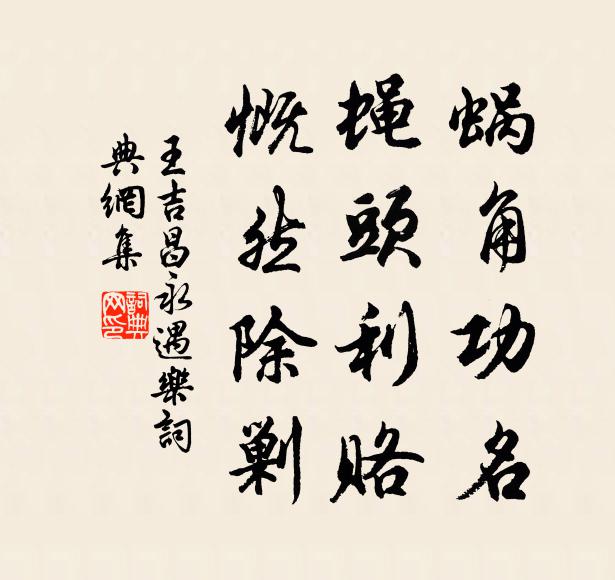 蜗角功名
蝇頭利赂
慨然除剿
王吉昌永遇樂詞
典網集
詞典网印